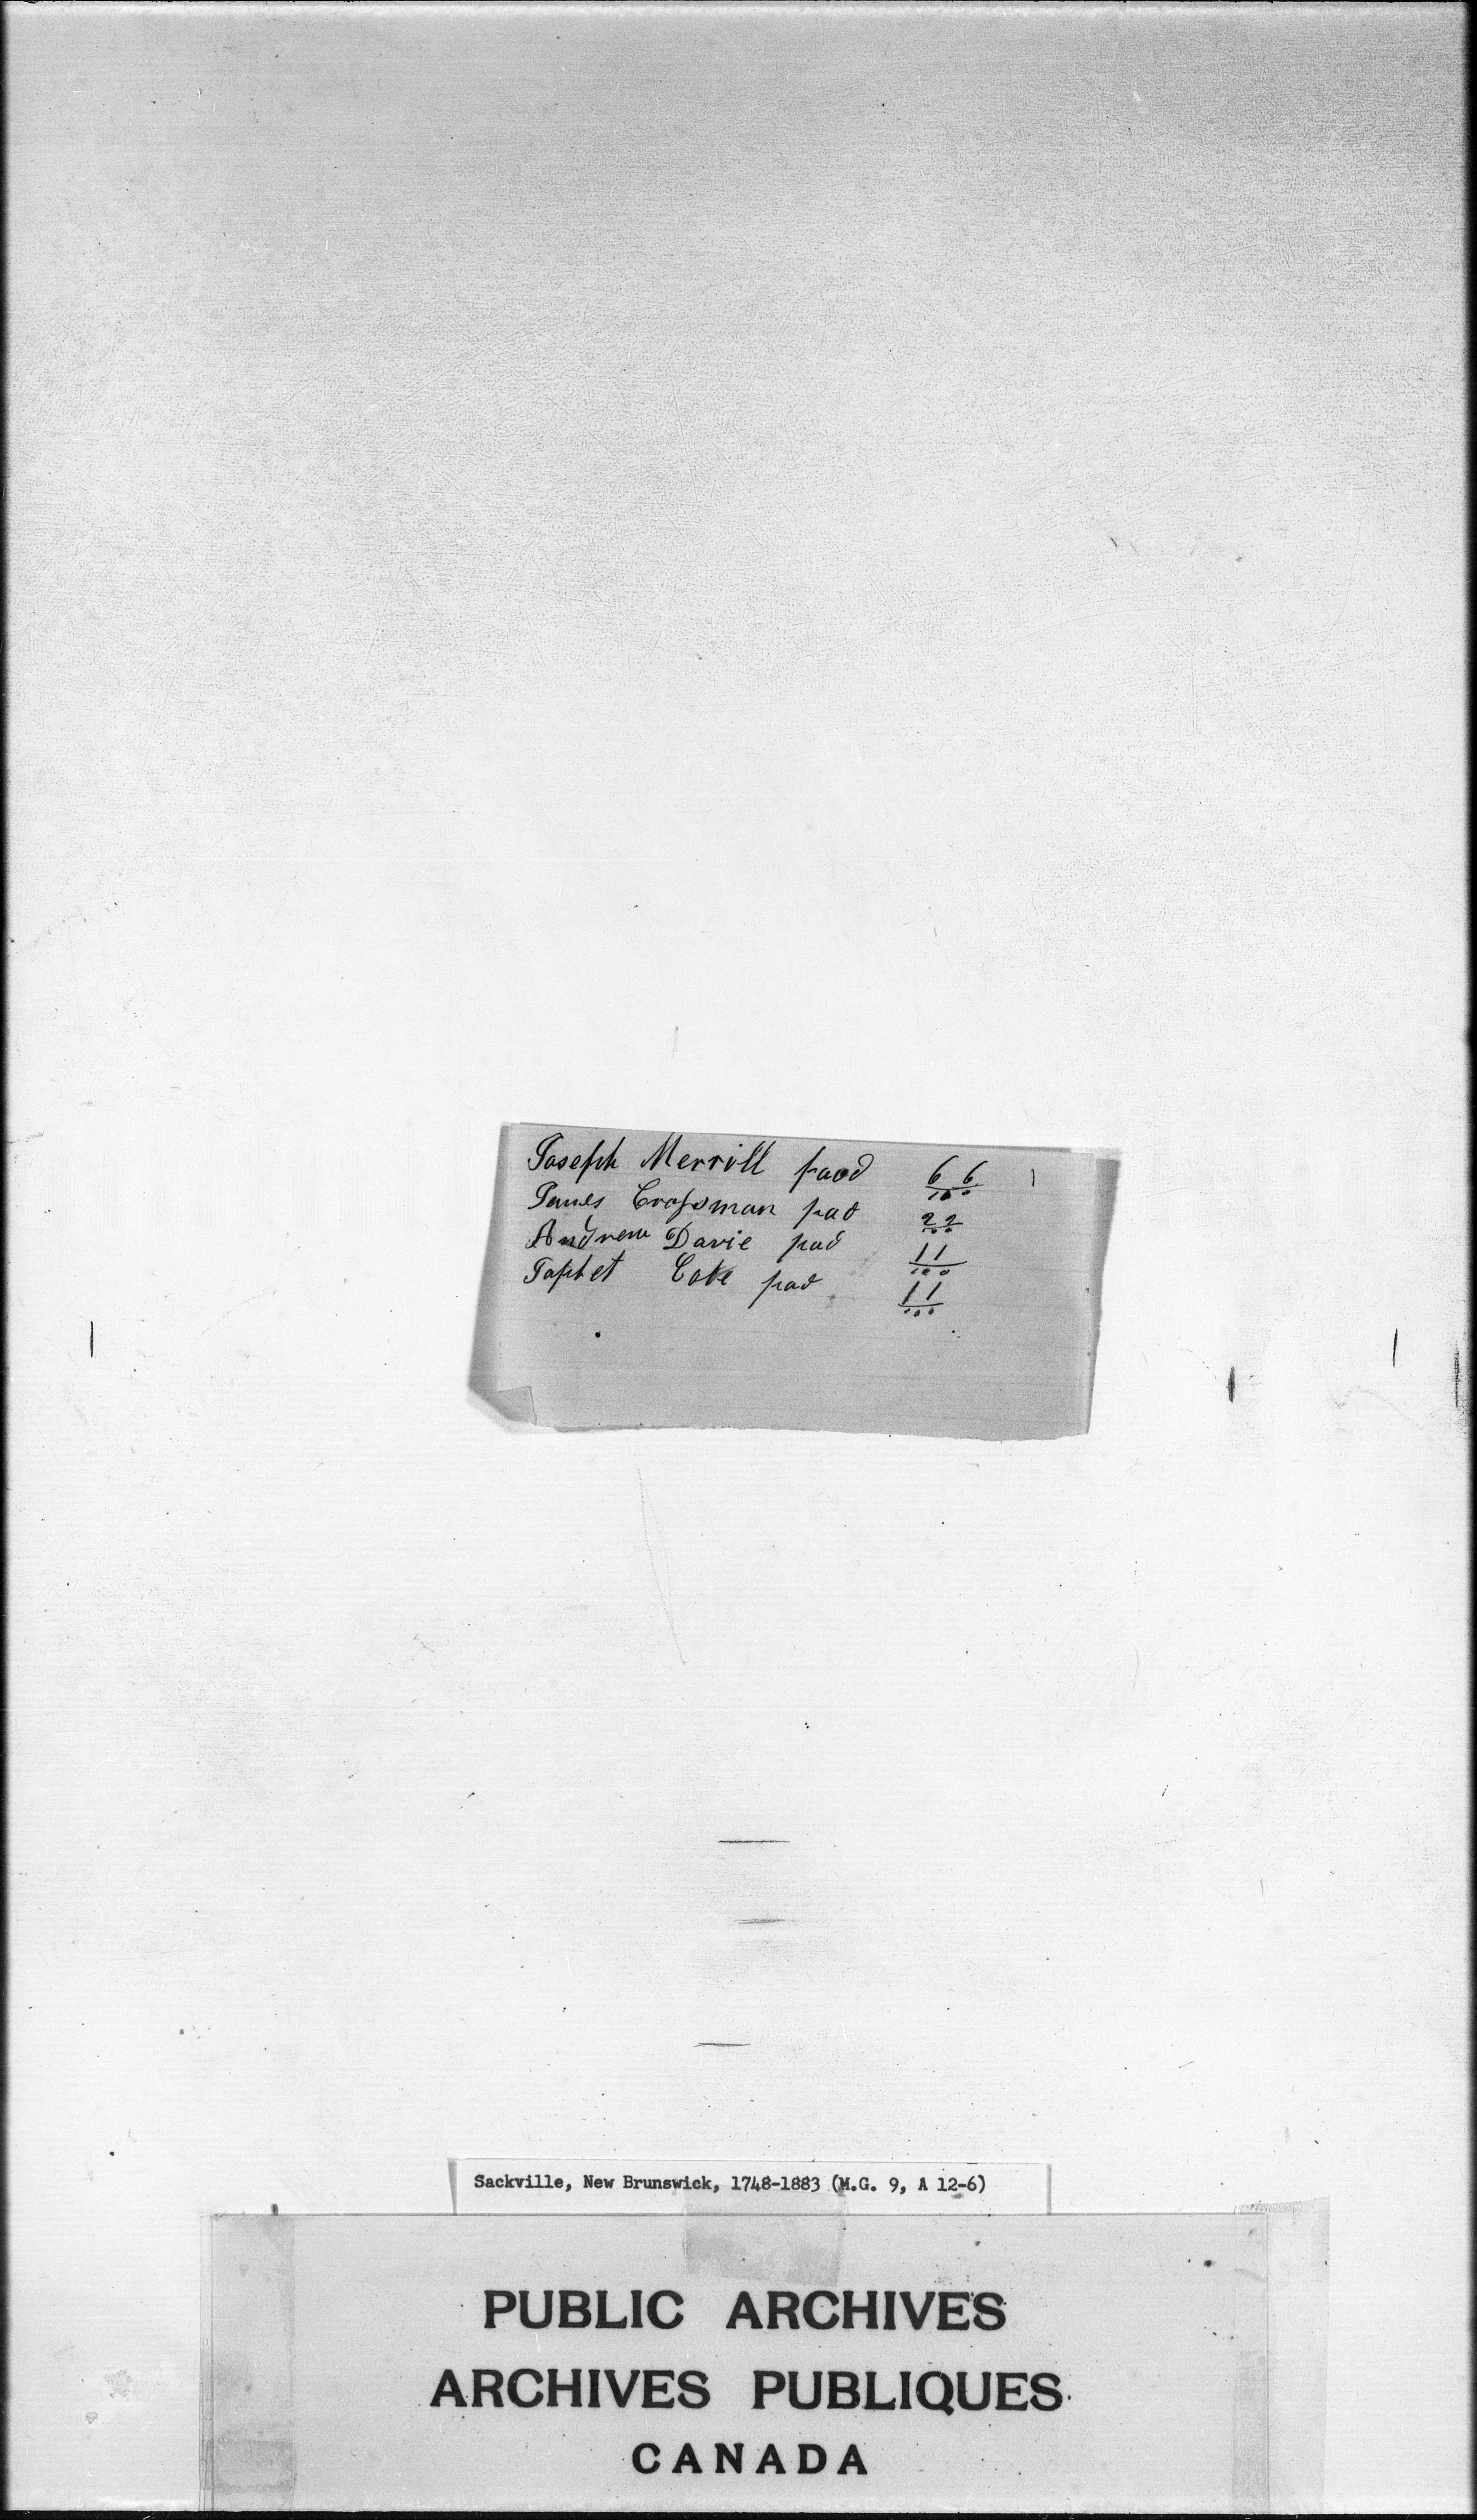 Joseph Merrill paod 66/100
James Crossman pad 22/100
Andrew Davie pad 11/100
Japhet Cole pad 11/100
Sackville, New Brunswick, 1748-1883 (M.G. 9, A 12-6)
PUBLIC ARCHIVES
ARCHIVES PUBLIQUES
CANADA